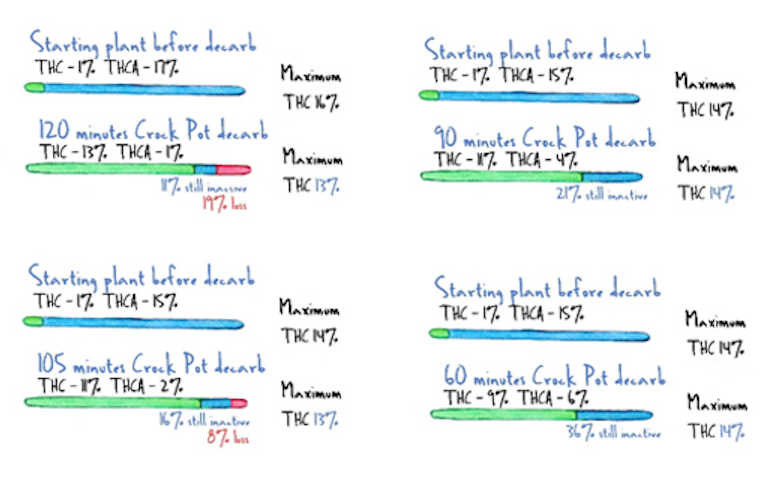 Starting plant before decarb
THC - 1% THCA - 17%
Maximum
THC 16%
120 minutes Crock Pot decarb
THC - 13% THCA - 1%
Maximum
THC 13%
11% still inactive
19% loss
Starting plant before decarb
THC - 1% THCA - 15%
Maximum
THC 14%
90 minutes Crock Pot decarb
THC - 11% THCA - 4%
Maximum
THC 14%
21% still inactive
Starting plant before decarb
THC - 1% THCA - 15%
Maximum
THC 14%
105 minutes Crock Pot decarb
THC - 11% THCA - 2%
Maximum
THC 13%
16% still inactive
8% loss
Starting plant before decarb
THC - 1% THCA - 15%
Maximum
THC 14%
60 minutes Crock Pot decarb
THC - 9% THCA - 6%
Maximum
THC 14%
36% still inactive